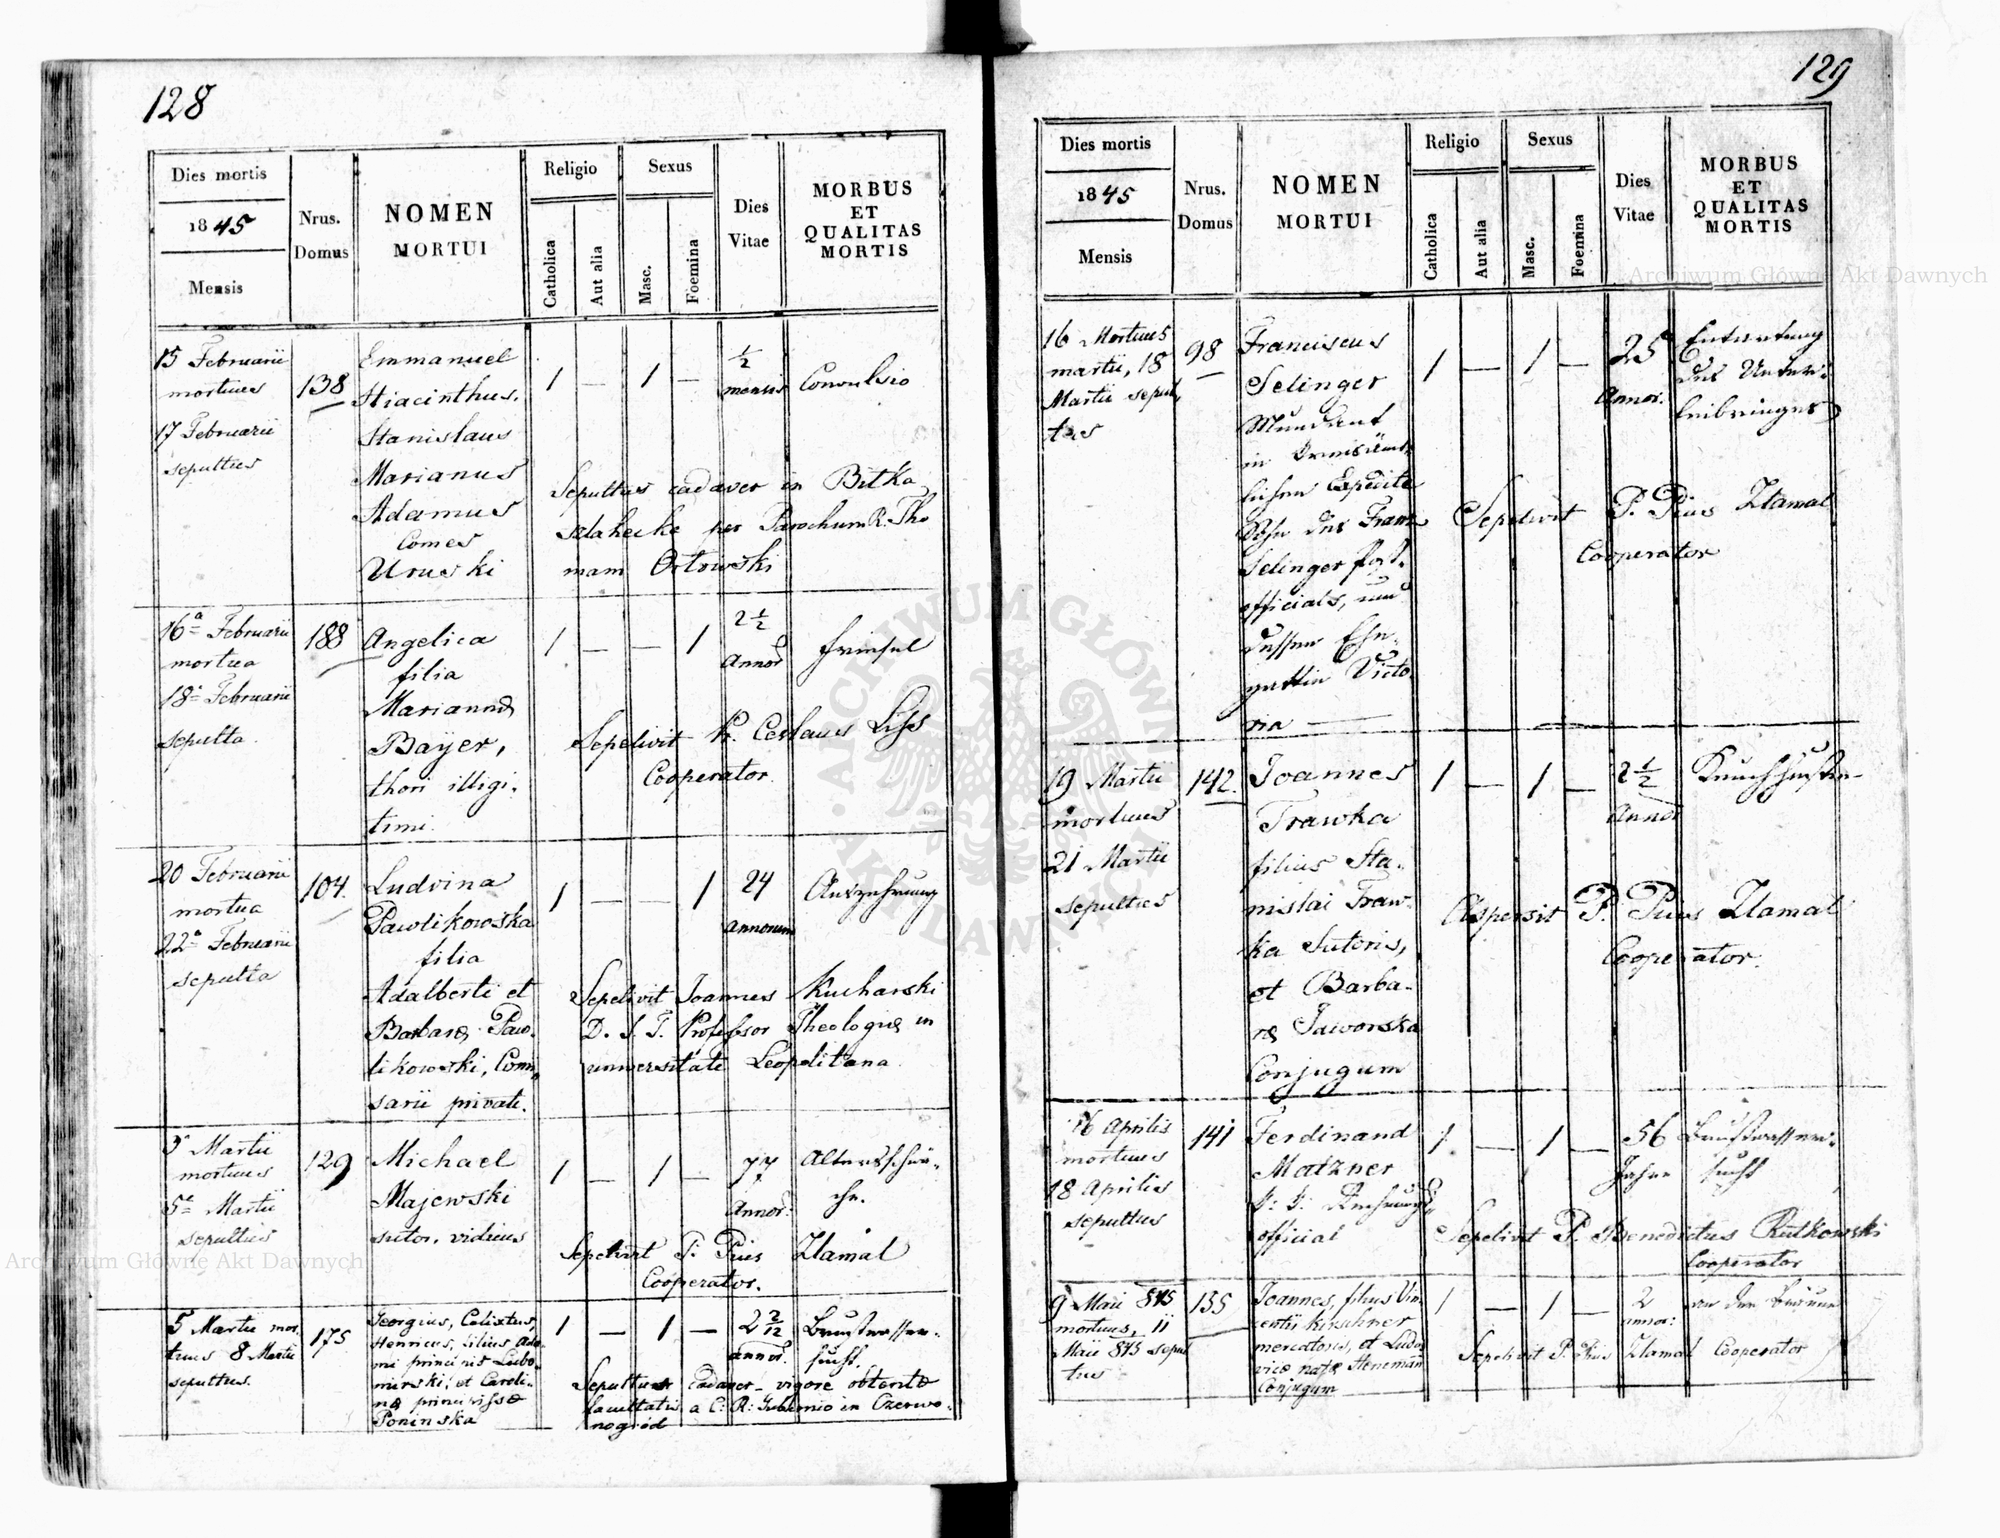 128
Dies mortis
1845
Mensis
Nrus.
Domus
NOMEN
MORTUI
Religio
Catholica
Aut alia
Sexus
Masc.
Foemina
Dies
Vitae
MORBUS
ET
QUALITAS
MORTIS
15 Februarii
mortuus
17 Februarii
sepultus
138
Emmanuel
Hiacinthus,
Stanislaus
Marianus
Adamus
Comes
Uruski
1 — 1 —
1/2
mensis
Convulsio
Sepultus cadaver in Bitka
szlahecke per Parochum R. Tho
mam Ortowski
16a Februarii
mortua
18a Februarii
sepulta.
188
Angelica
filia
Mariannæ
Bayer,
thori illigi-
timi.
1 — — 1
2 1/2
Annor
Frieisel
Sepelivit Pr. Ceslaus Liss
Cooperator.
20 Februarii
mortua
22a Februarii
sepulta
104.
Ludvina
Pawlikowska
filia
Adalberti et
Barbaræ Paw-
likowski, Comi-
sarii privati.
1 — — 1
24
annorum
Auszehrung
Sepelivit Joannes Kucharski
D. S. T. Professor Theologiæ in
universitate Leopolitana.
3 Martii
mortuus
5a Martii
sepultus
129
Michael
Majewski
sutor, viduus
1 — 1 —
77
Annor.
Altersschwä-
che.
Sepelivit P: Pius Zlamal
Cooperator.
5 Martii mor-
tuus 8 Martii
sepultus.
175
Georgius, Calixtus,
Henricus, filius Ada-
mi principis Lubo-
mirski, et Caroli-
næ principissæ
Poninska
1 — 1 —
2 2/12
annor.
Brustwasser-
sucht.
Sepultus cadaver vigore obtentæ
facultatis a C: R: Gubernio in Czerwo-
nogrod
129
Dies mortis
1845
Mensis
Nrus.
Domus
NOMEN
MORTUI
Religio
Catholica
Aut alia
Sexus
Masc.
Foemina
Dies
Vitae
MORBUS
ET
QUALITAS
MORTIS
16 Mortuus
martii, 18
Martii sepul-
tus
98
Franciscus
Selinger
Mundant
in
lichen Expedite
Sohn des Franz
Selinger Post-
officials, und
dessen Ehe-
gattin Victo-
ria —
1 — 1 —
25
Annor.
Entartung
der Unter-
leibeinge
Sepelivit P. Pius Zlamal
Cooperator
19 Martii
mortuus
21 Martii
sepultus
142.
Joannes
Trawka
filius Sta-
nislai Traw-
ka Sutoris,
et Barba-
ræ Jaworska
Conjugum
1 — 1 —
2 1/2
Annor
Keuchhusten
Aspersit P. Pius Zlamal
Cooperator.
16 Aprilis
mortuus
18 Aprilis
sepultus
141
Ferdinand
Matzner
k: k: Rechnungs
official
1 — 1 —
56
Jahre
Brustwasser-
sucht
Sepelivit P. Benedictus Rutkowski
Cooperator
9 Maii 845
mortuus, 11
Maii 845 sepul
tus
135
Joannes, filius Vin-
centii Kirschner
mercatoris, et Ludo-
vicæ natæ Heneman
Conjugum
1 — 1 —
2
annor:
an der Bräune
Sepelivit P. Pius Zlamal Cooperator
Archiwum Główne Akt Dawnych
Archiwum Główne Akt Dawnych
ARCHIWUM GŁÓWNE
AKT DAWNYCH